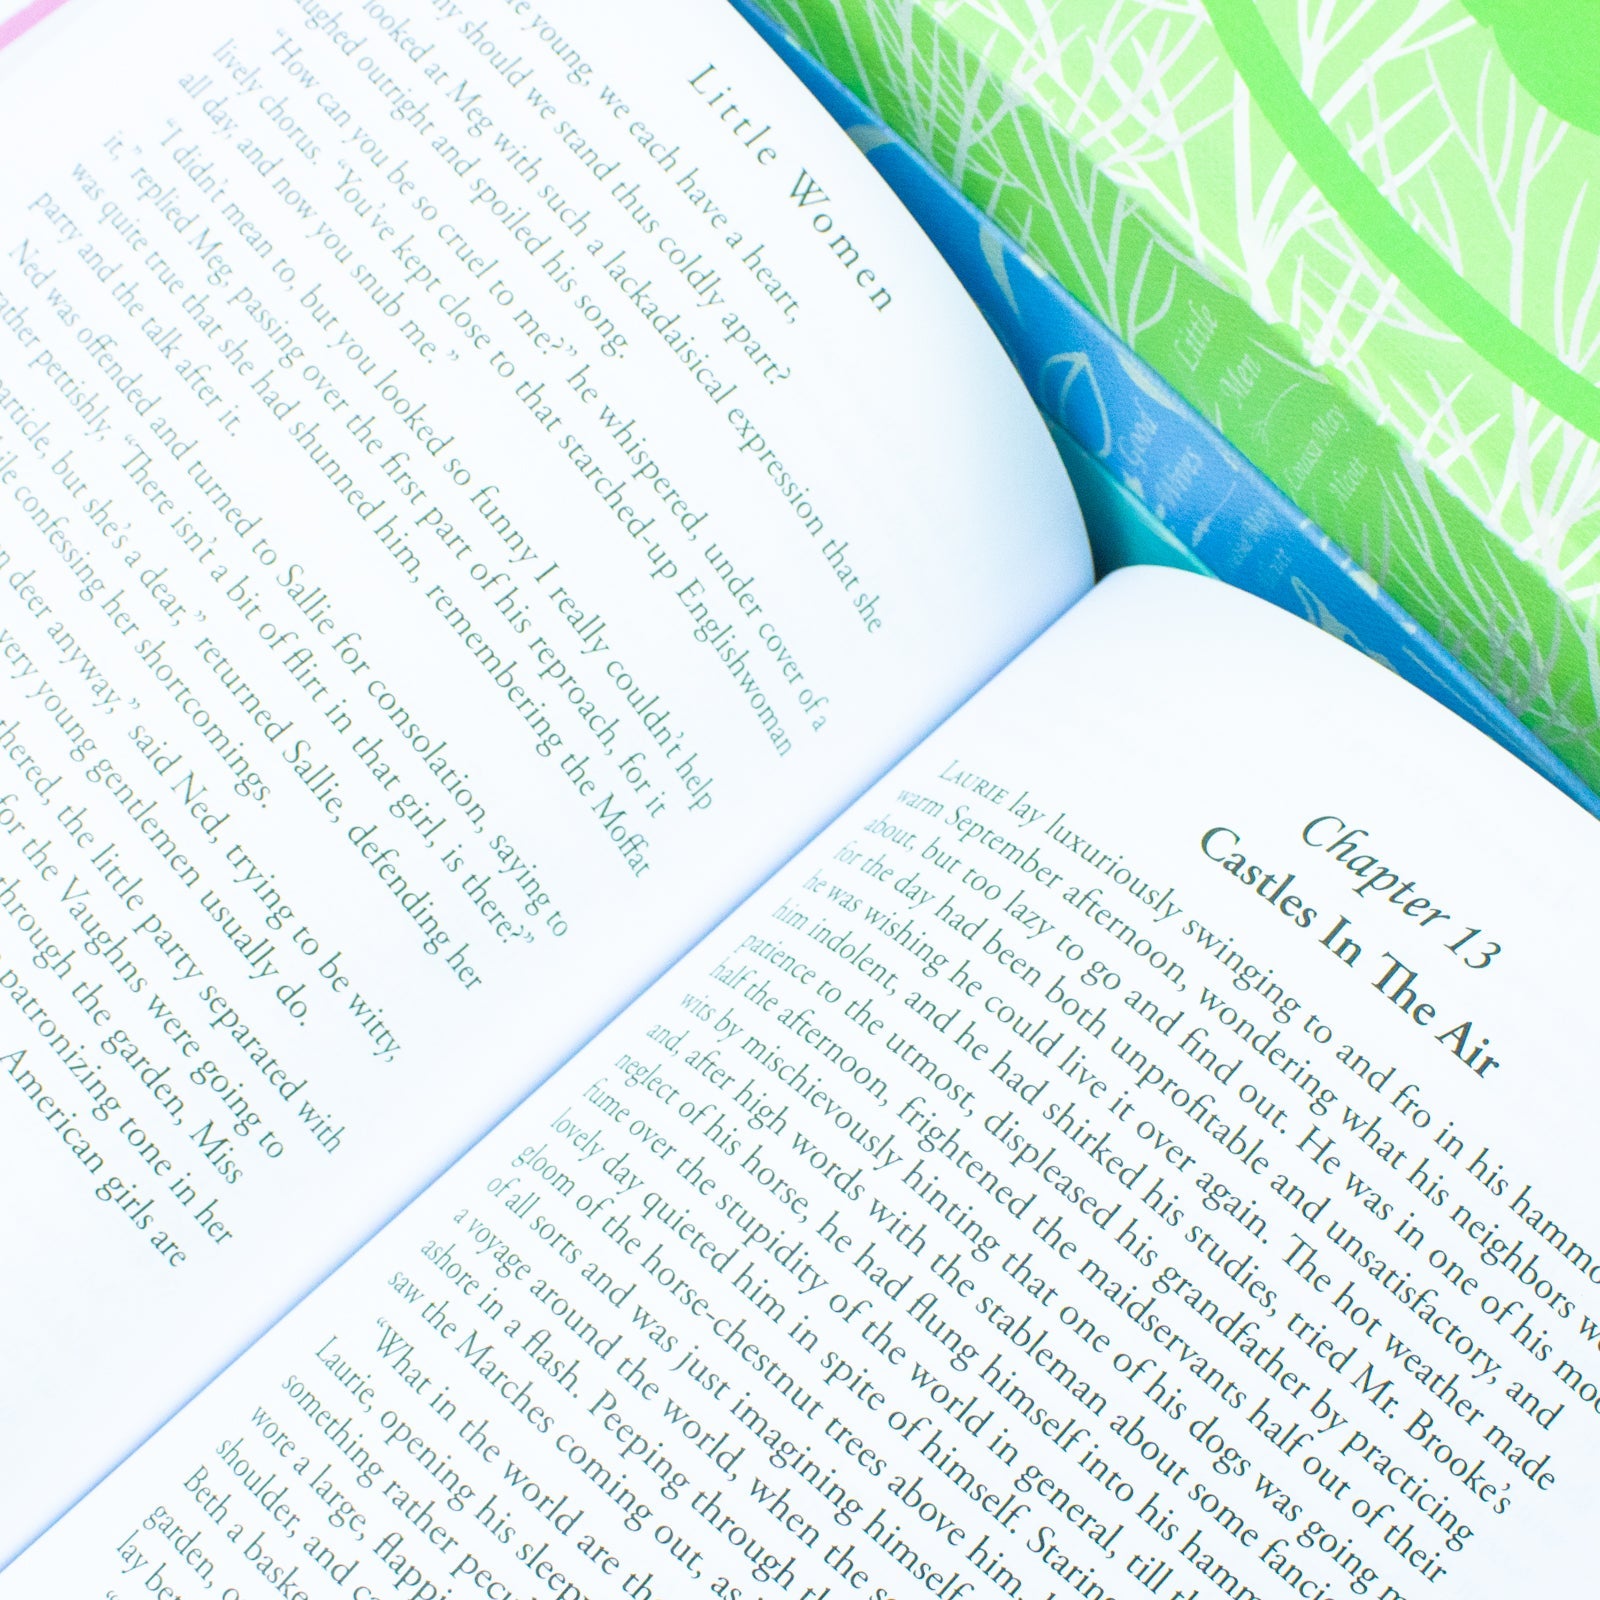 Little Women
young, we each have a heart,
should we stand thus coldly apart?
looked at Meg with such a lackadaisical expression that she
laughed outright and spoiled his song.
“How can you be so cruel to me?” he whispered, under cover of a
lively chorus. “You’ve kept close to that starched-up Englishwoman
all day, and now you snub me.”
“I didn’t mean to, but you looked so funny I really couldn’t help
it,” replied Meg, passing over the first part of his reproach, for it
was quite true that she had shunned him, remembering the Moffat
party and the talk after it.
Ned was offended and turned to Sallie for consolation, saying to
rather pettishly, “There isn’t a bit of flirt in that girl, is there?”
particle, but she’s a dear,” returned Sallie, defending her
confessing her shortcomings.
deer anyway,” said Ned, trying to be witty,
very young gentlemen usually do.
the little party separated with
for the Vaughns were going to
through the garden, Miss
patronizing tone in her
American girls are
Chapter 13
Castles In The Air
LAURIE lay luxuriously swinging to and fro in his
warm September afternoon, wondering what his neighbors
about, but too lazy to go and find out. He was in one of his
for the day had been both unprofitable and unsatisfactory, and
he was wishing he could live it over again. The hot weather made
him indolent, and he had shirked his studies, tried Mr. Brooke’s
patience to the utmost, displeased his grandfather by practicing
half the afternoon, frightened the maidservants half out of their
wits by mischievously hinting that one of his dogs was going
and, after high words with the stableman about some
neglect of his horse, he had flung himself into his
fume over the stupidity of the world in general, till
lovely day quieted him in spite of himself. Staring
gloom of the horse-chestnut trees above him,
of all sorts and was just imagining himself
a voyage around the world, when the
ashore in a flash. Peeping through
saw the Marches coming out, as
“What in the world are
Laurie, opening his
something rather
wore a large,
shoulder, and
Beth a
garden,
lay
Little
Men
Louisa May
Alcott
Good
Wives